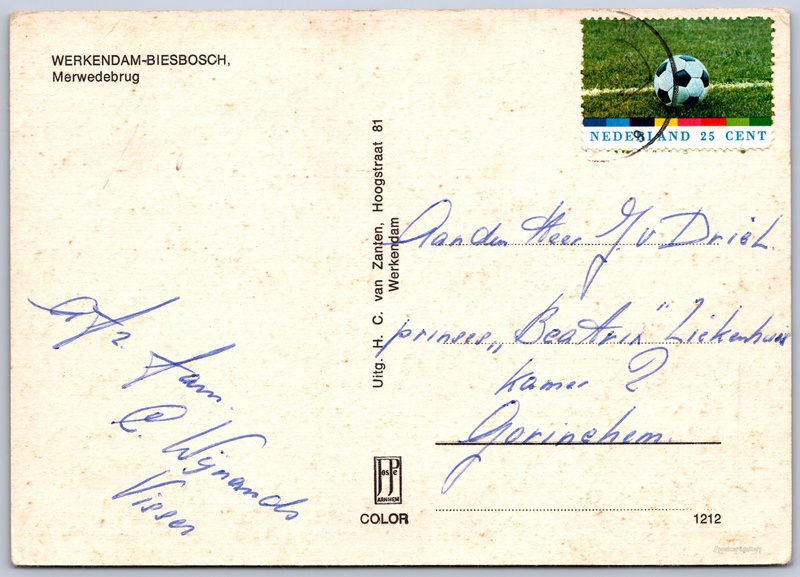 WERKENDAM-BIESBOSCH,
Merwedebrug
NEDERLAND 25 CENT
Uitg. H. C. van Zanten, Hoogstraat 81
Werkendam
Aan den Heer J. v Driel.
prinses „Beatrix" Ziekenhuis
kamer 2
Gorinchem.
Afz.
fam.
C. Wijnands
Visser
JosPe
ARNHEM
COLOR
1212